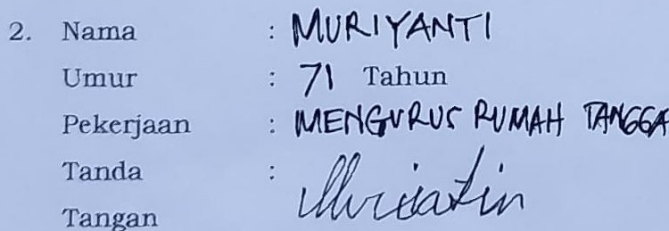 2. Nama : MURIYANTI
Umur : 71 Tahun
Pekerjaan : MENGURUS RUMAH TANGGA
Tanda :
Tangan